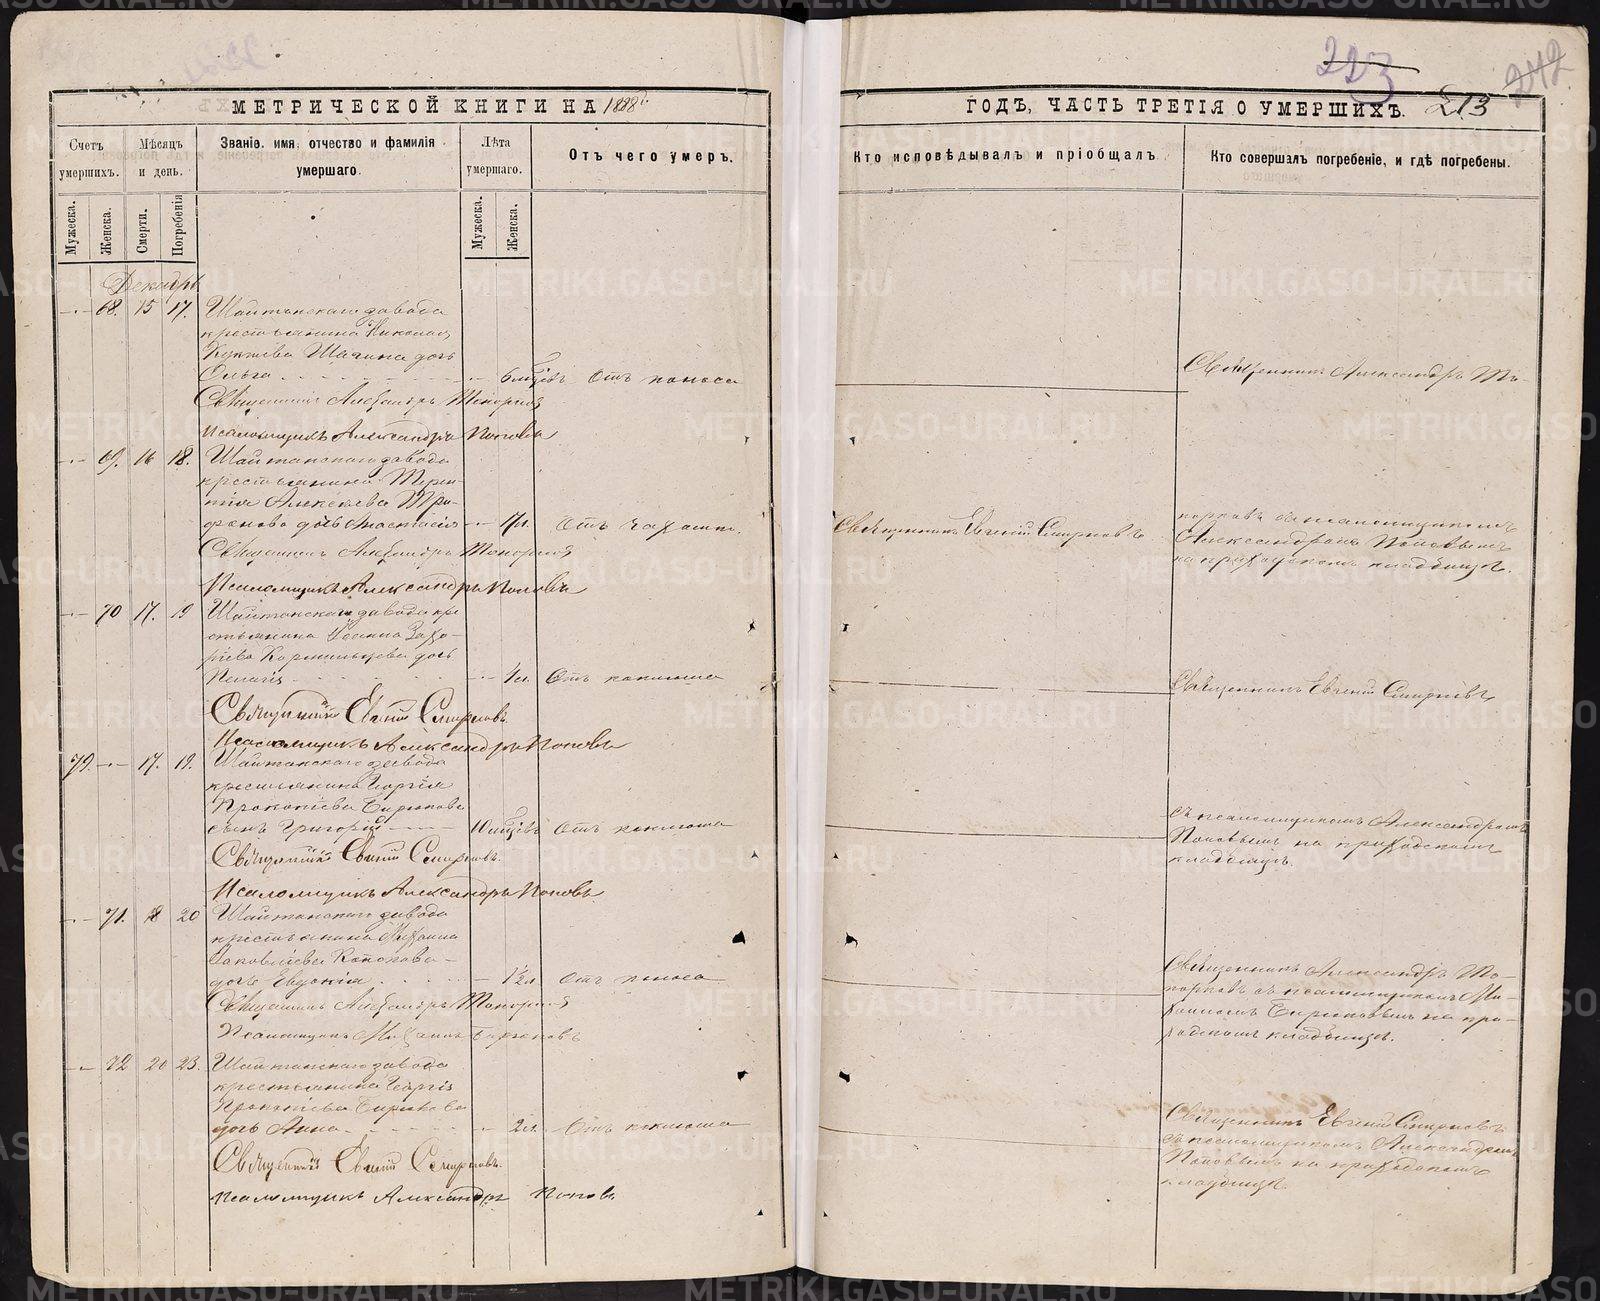 223
242
МЕТРИЧЕСКОЙ КНИГИ НА 1888 г.
ГОДЪ, ЧАСТЬ ТРЕТІЯ О УМЕРШИХЪ. 213
Счетъ умершихъ.
Мѣсяцъ и день.
Званіе, имя, отчество и фамилія умершаго.
Лѣта умершаго.
Отъ чего умеръ.
Кто исповѣдывалъ и пріобщалъ
Кто совершалъ погребеніе, и гдѣ погребены.
Мужеска.
Женска.
Смерти.
Погребенія
Мужеска.
Женска.
Декабрь
68. 15 17. Шайтанскаго завода
крестьянина Николая
Шагина дочь
Ольга 6 мѣсяцѣвъ Отъ поноса
Священникъ Александръ То-
Священникъ Александръ Топорковъ
Псаломщикъ Александръ Поповъ
69. 16 18. Шайтанскаго завода
крестьянина Терен-
тія Алексѣева Три-
фанова дочь Анастасія 17 л. Отъ чахотки.
Священникъ Евгеній Смирновъ
порковъ съ псаломщикомъ
Александромъ Поповымъ
на приходскомъ кладбищѣ.
Священникъ Александръ Топорковъ
Псаломщикъ Александръ Поповъ
70 17. 19 Шайтанскаго завода кре
стьянина Іоанна Заха-
рыева Кормильцева дочь
Пелагія 4 л. Отъ коклюша
Священникъ Евгеній Смирновъ,
Священникъ Евгеній Смирновъ.
Псаломщикъ Александръ Поповъ
79. 17. 19. Шайтанскаго завода
крестьянина Георгія
Прокопіева Бирюкова
сынъ Григорій 10 мѣсяцѣвъ Отъ коклюша
съ псаломщикомъ Александромъ
Поповымъ на приходскомъ
кладбищѣ.
Священникъ Евгеній Смирновъ.
Псаломщикъ Александръ Поповъ.
71. 18 20 Шайтанскаго завода
крестьянина Михаила
Іаковлева
дочь Евдокія 1½ л. Отъ поноса
Священникъ Александръ То-
порковъ съ псаломщикомъ Ми-
хаиломъ Бирюковымъ на при-
ходскомъ кладбищѣ.
Священникъ Александръ Топорковъ
Псаломщикъ Михаилъ Бирюковъ
72 20 23. Шайтанскаго завода
крестьянина Георгія
Прокопіева Бирюкова
дочь Анна 2 л. Отъ коклюша
Священникъ Евгеній Смирновъ
съ псаломщикомъ Александромъ
Поповымъ на приходскомъ
кладбищѣ
Священникъ Евгеній Смирновъ.
Псаломщикъ Александръ Поповъ
METRIKI.GASO-URAL.RU